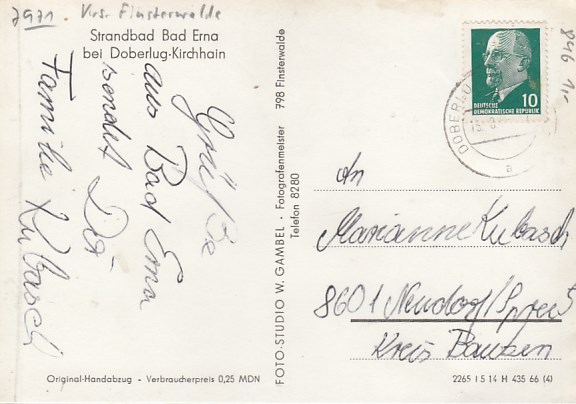 7971 Krs. Finsterwalde
Strandbad Bad Erna
bei Doberlug-Kirchhain
Grüße
aus Bad Erna
sendet Dir
Familie Kubasch
Original-Handabzug - Verbraucherpreis 0,25 MDN
FOTO-STUDIO W. GAMBEL · Fotografenmeister 798 Finsterwalde
Telefon 8280
DEUTSCHE
DEMOKRATISCHE REPUBLIK
10
DOBERLUG
a
An
Marianne Kubasch
8601 Neudorf/Spree
Kreis Bautzen
2265 I 5 14 H 435 66 (4)